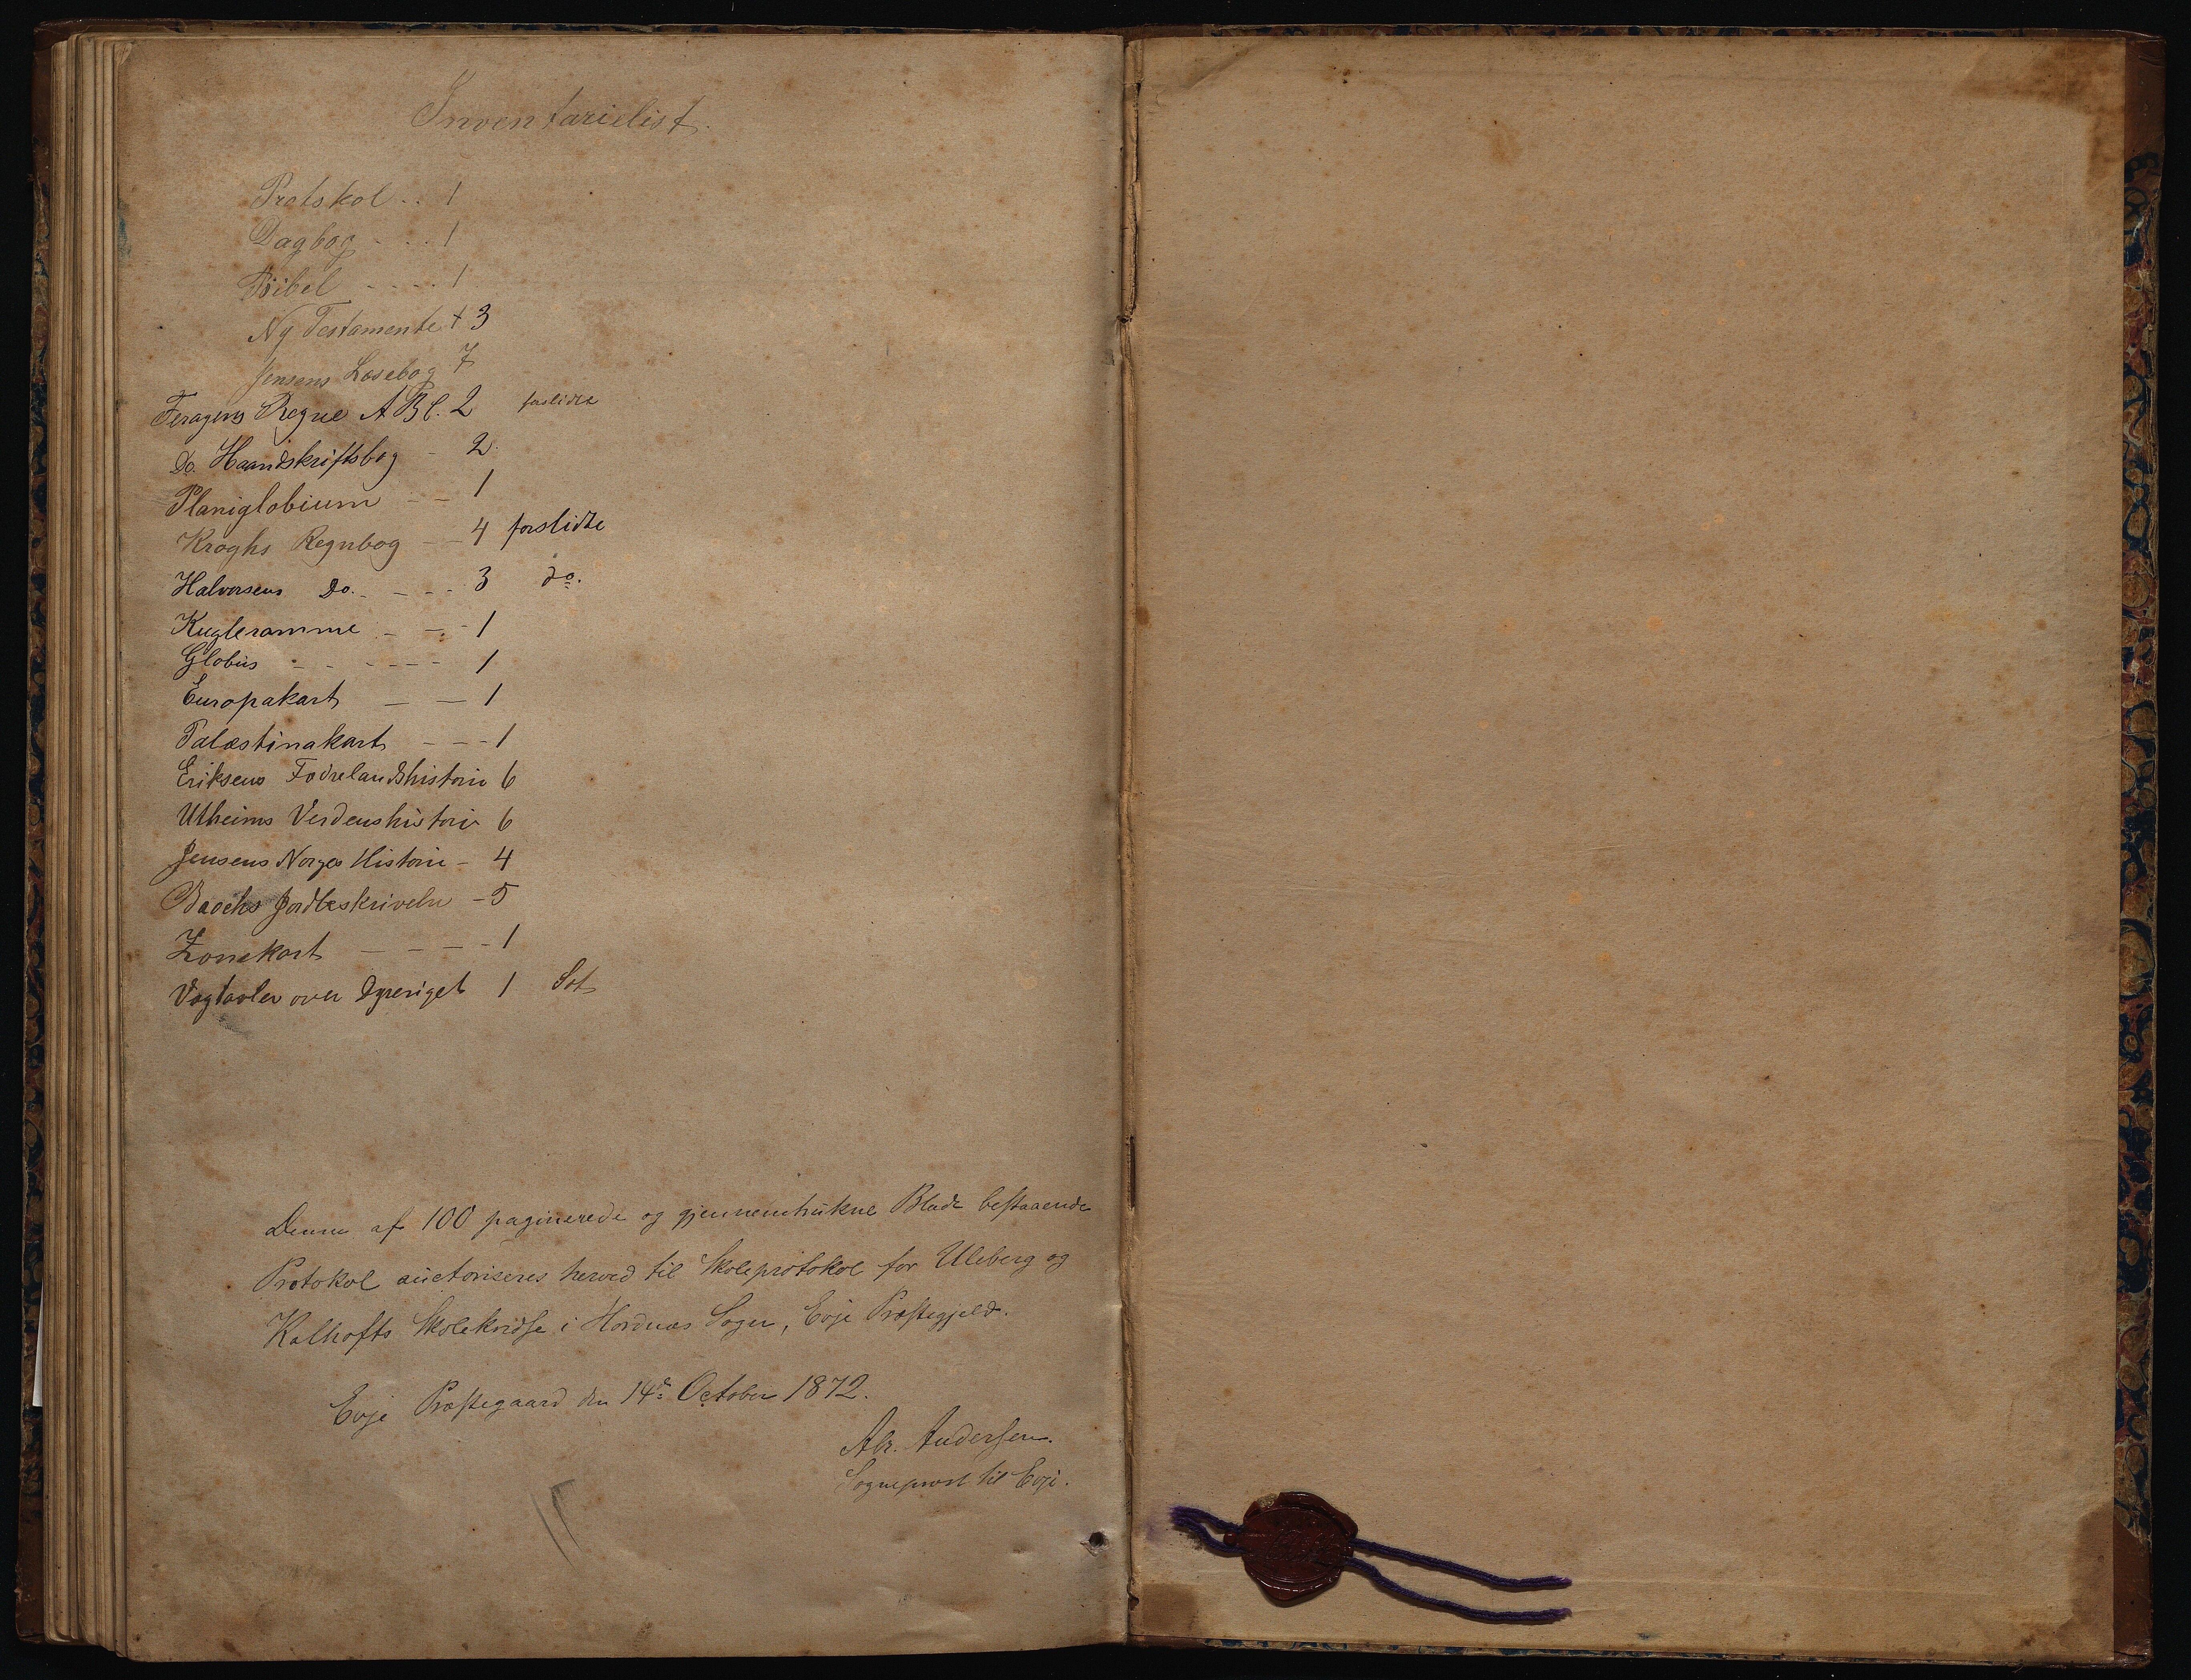 Inventarielist.
Protokol . . 1
Dagbog - . . 1
Bibel - - - - 1
Ny Testamente + 3
Jensens Læsebog 7
Feragens Regne ABC. 2 forslidte
Do. Haandskriftsbog - 2
Planiglobium - - 1
Kroghs Regnbog - - 4 forslidte
Halvorsens Do. - - - 3 do.
Kugleramme - - - 1
Globus - - - - - - 1
Europakart - - 1
Palæstinakart - - - 1
Eriksens Fædrelandshistorie 6
Utheims Verdenshistorie 6
Jensens Norges Historie - 4
Jordbeskrivelse - 5
Zonekart - - - - 1
Vægtavler over Dyreriget 1 Set
Denne af 100 paginerede og gjennemtrukne Blade bestaaende
Protokol auctoriseres herved til Skoleprotokol for Uleberg og
Kalhofts Skolekredse i Hordnæs Sogn, Evje Præstegjeld.
Evje Præstegaard den 14de October 1872.
Abr. Andersen.
Sogneprest til Evje.